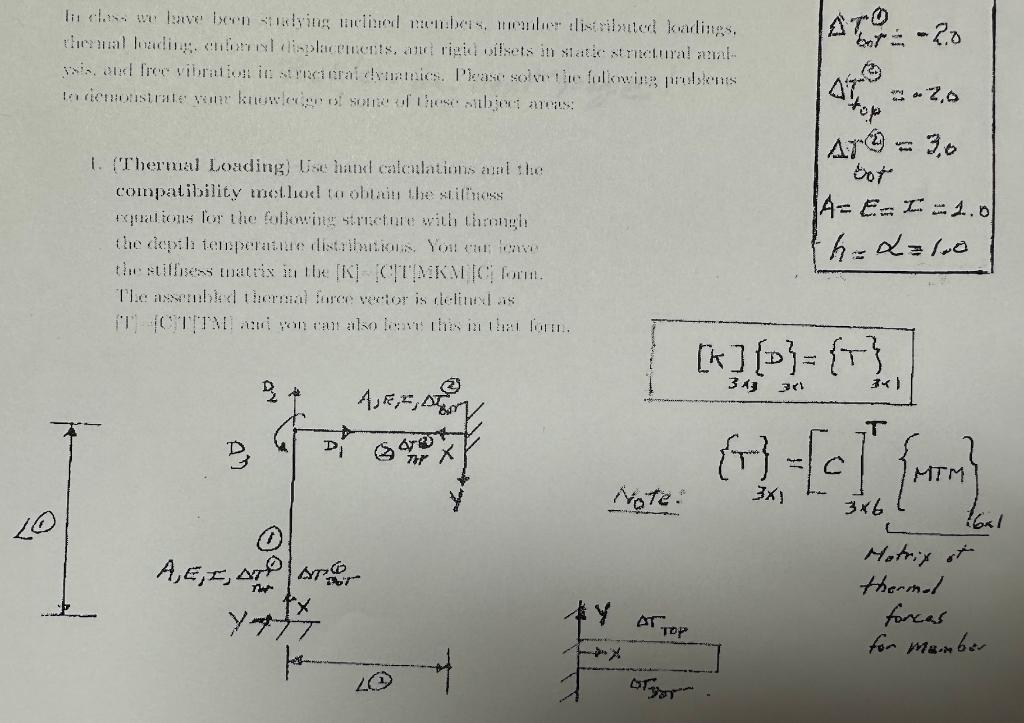 In class we have been studying inclined members, member distributed loadings,
thermal loading, enforced displacements, and rigid offsets in static structural anal-
ysis, and free vibration in structural dynamics. Please solve the following problems
to demonstrate your knowledge of some of these subject areas:
1. (Thermal Loading) Use hand calculations and the
compatibility method to obtain the stiffness
equations for the following structure with through
the depth temperature distributions. You can leave
the stiffness matrix in the [K]=[C]T[MKM][C] form.
The assembled thermal force vector is defined as
[T]=[C]T[TM] and you can also leave this in that form.
ΔT① bot = -2.0
ΔT② top = -2.0
ΔT② bot = 3.0
A = E = I = 1.0
h = α = 1.0
[K] {D} = {T}
3x3 3x1 3x1
Note: {T} = [C]T {MTM}
3x1 3x6 6x1
Matrix of
thermal
forces
for member
D2
A, E, I, ΔT② BOT
D3
D1
② ΔT② TOP X
Y
L①
①
A, E, I, ΔT① TOP
ΔT① BOT
Y
X
L②
Y
ΔT TOP
X
ΔT BOT